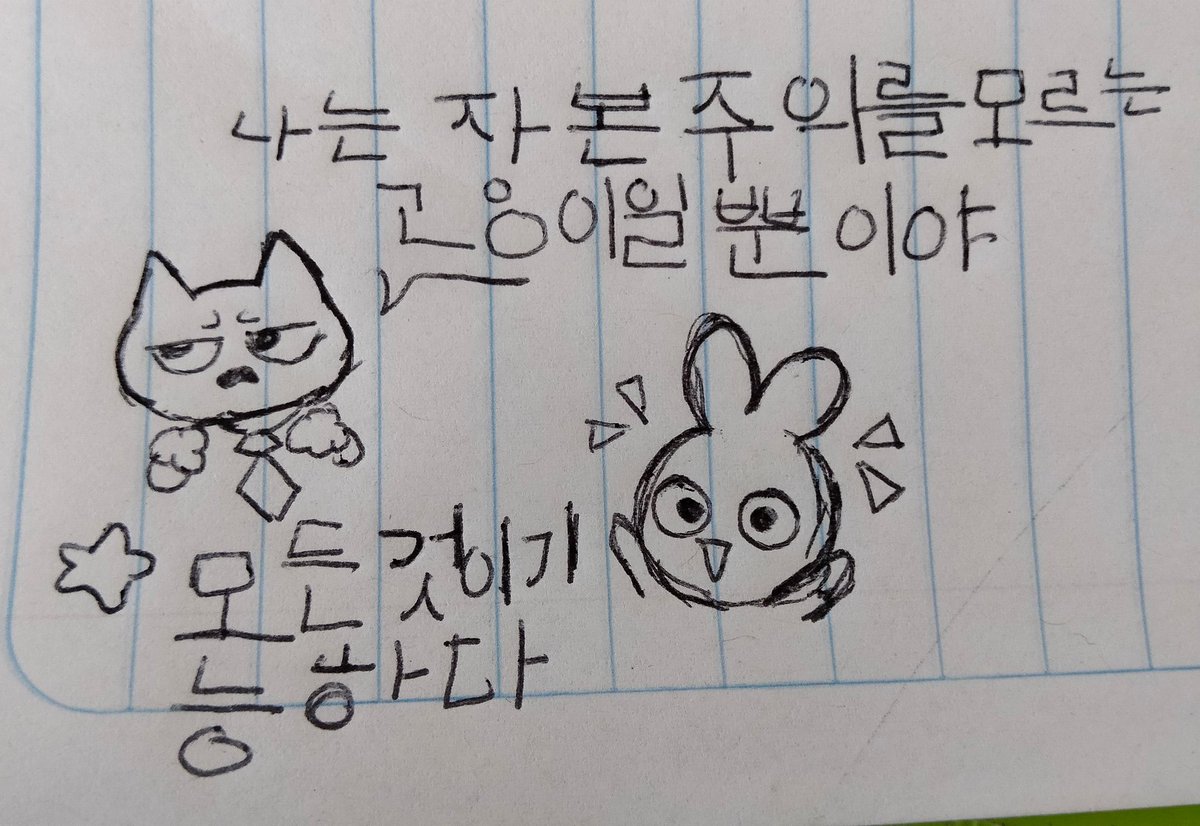 나는 자본주의를모르는
고옹이일뿐이야
모든것이기
능하다